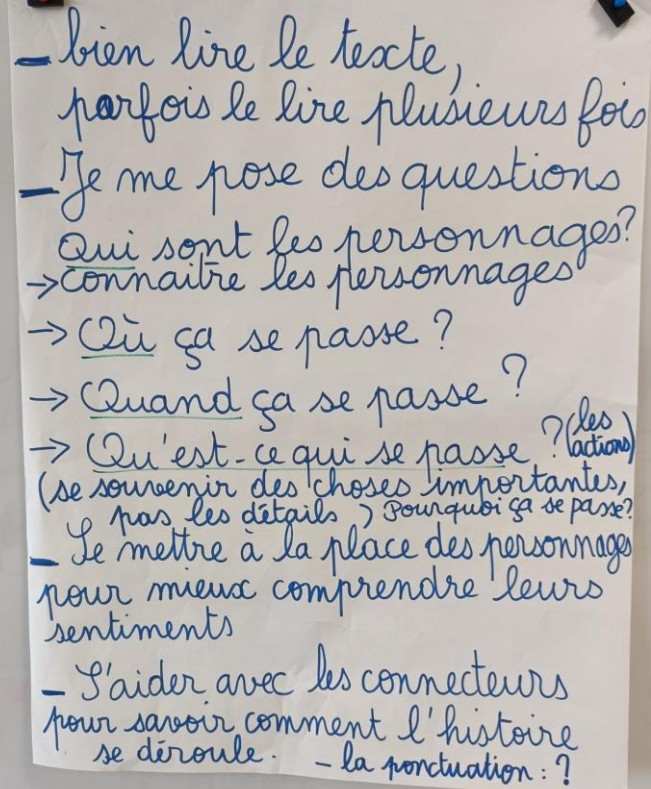 - bien lire le texte,
parfois le lire plusieurs fois
- Je me pose des questions
Qui sont les personnages?
→ connaitre les personnages
→ Où ça se passe ?
→ Quand ça se passe ?
→ Qu'est-ce qui se passe ? (les actions)
(se souvenir des choses importantes,
pas les détails ) Pourquoi ça se passe?
- Se mettre à la place des personnages
pour mieux comprendre leurs
sentiments
- S'aider avec les connecteurs
pour savoir comment l'histoire
se déroule. - la ponctuation : ?